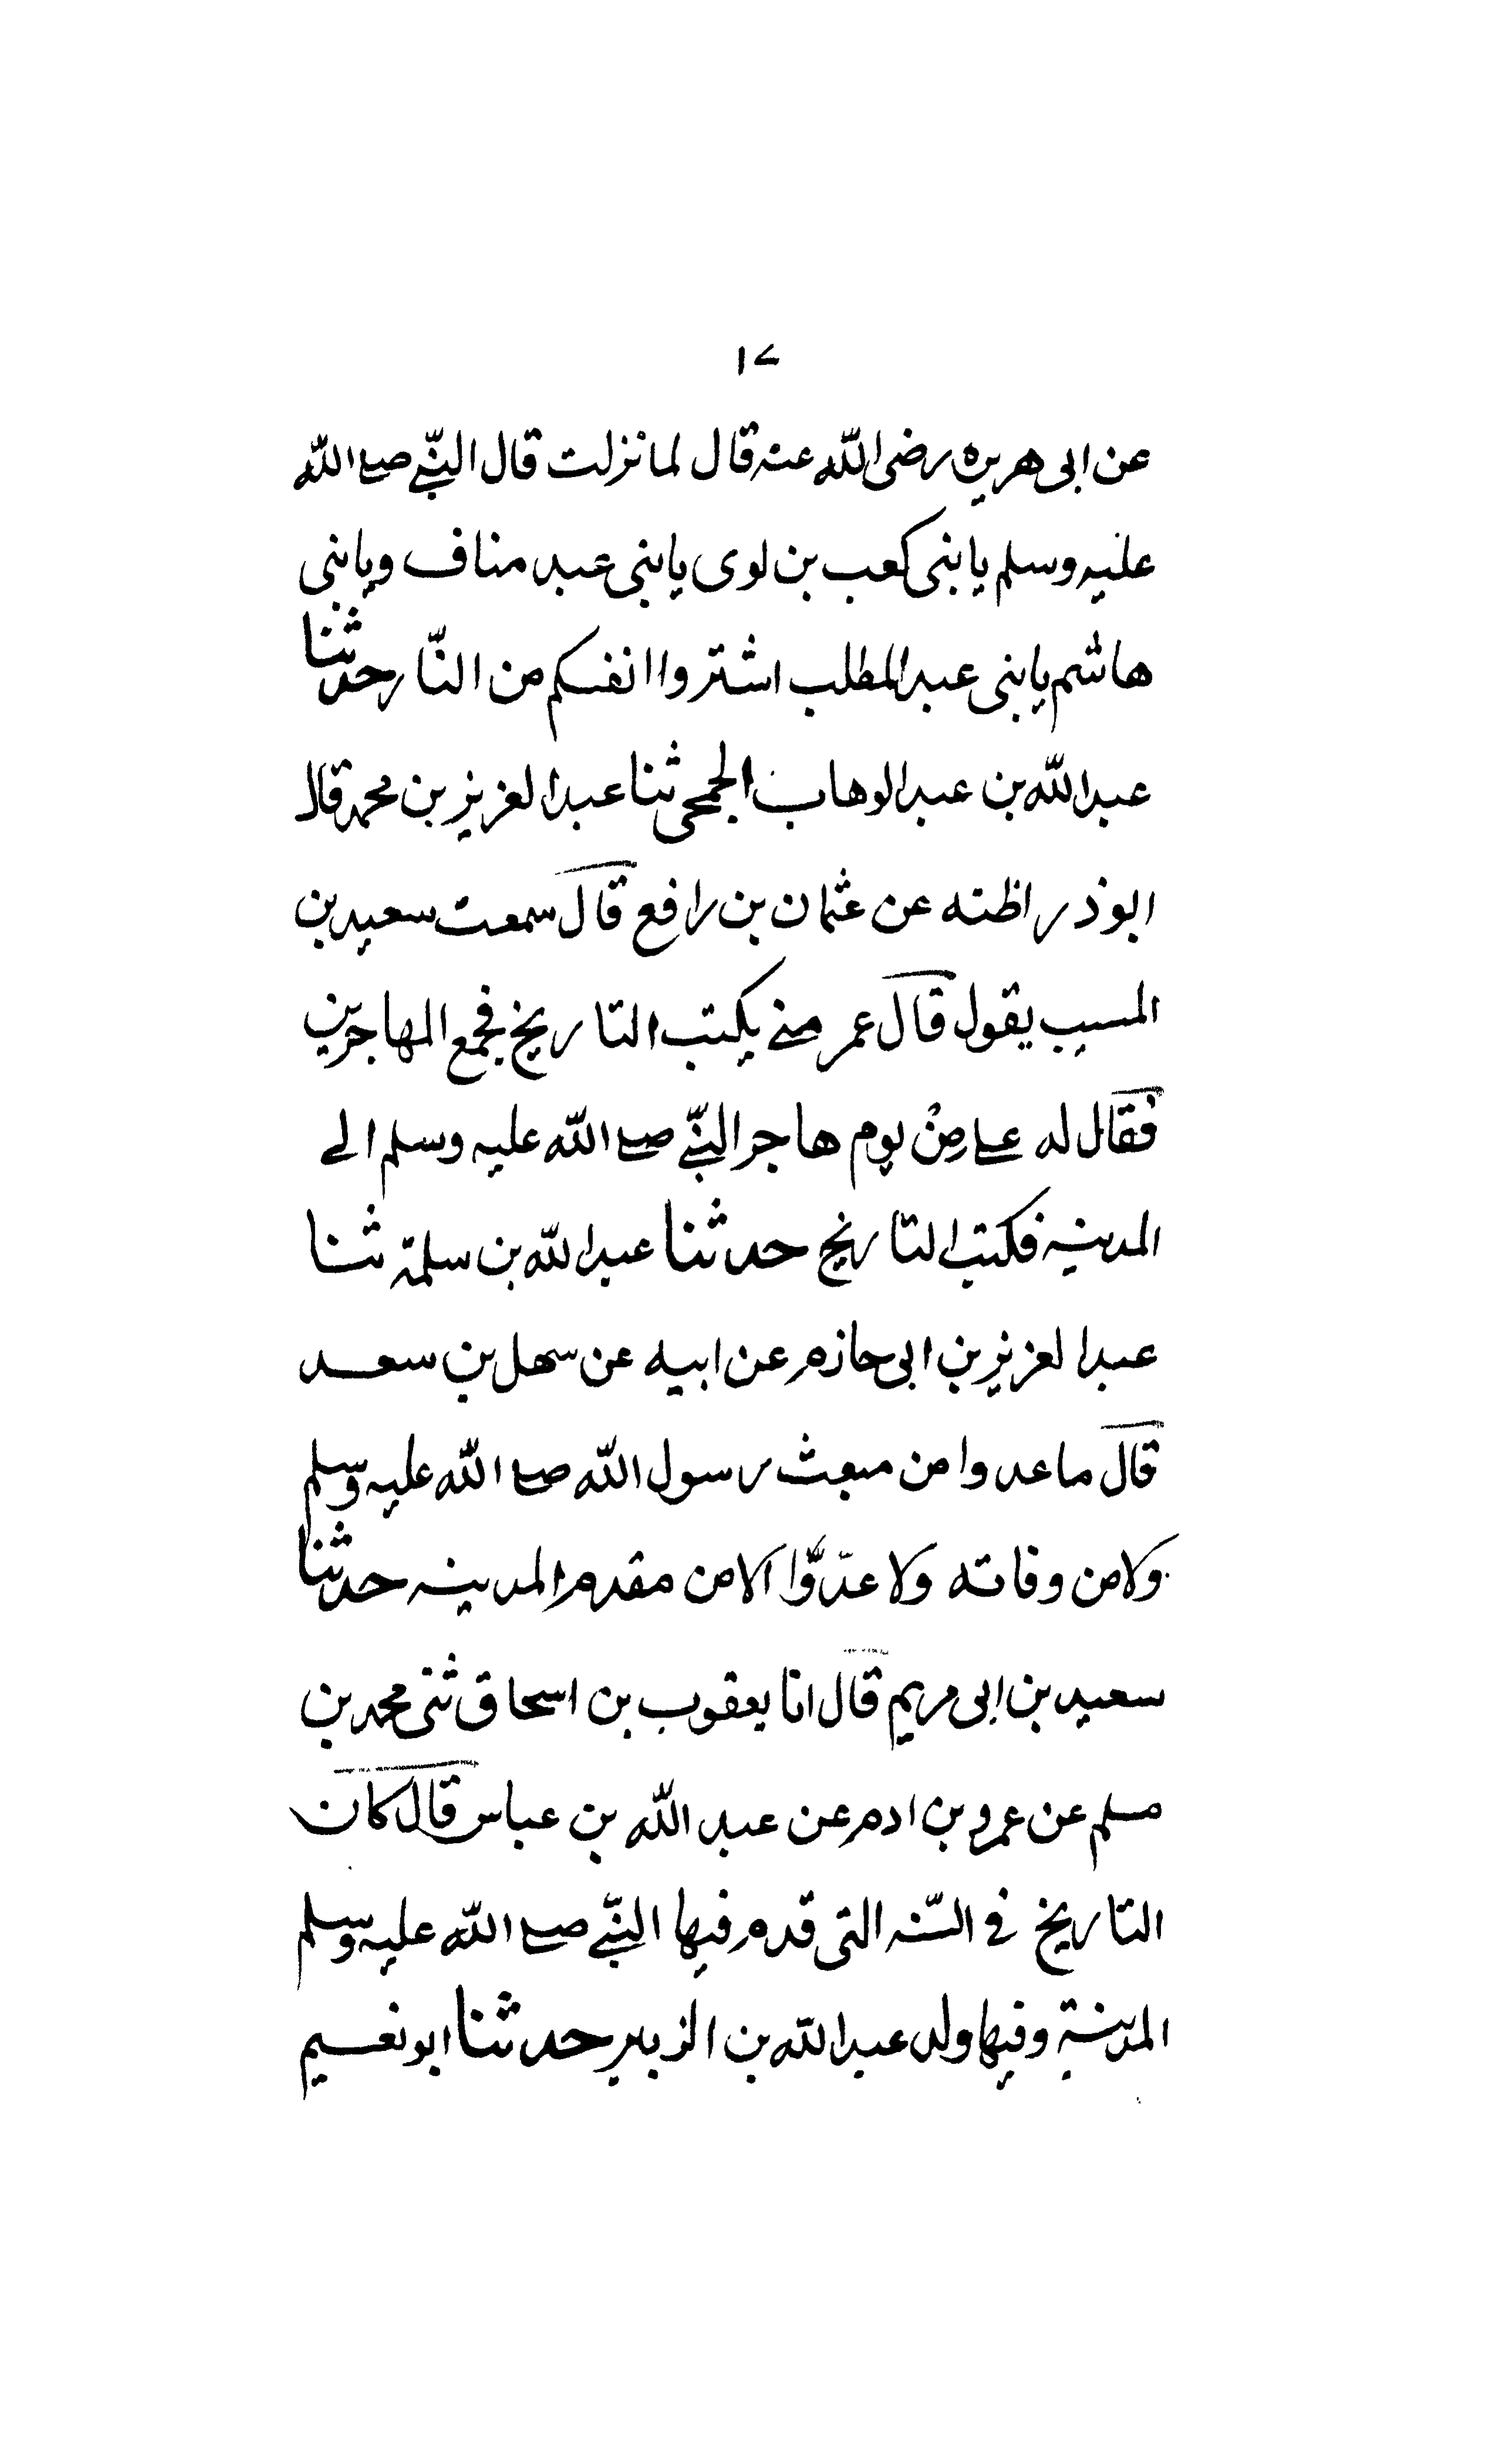 ١٧
عن ابى هريره رضى الله عنه قال لما نزلت قال النّبي صلى الله
عليه وسلم يا بنى كعب بن لوى يا بنى عبد مناف ويا بنى
هاشم يا بنى عبد المطلب اشتروا انفسكم من النّار حدثنا
عبد الله بن عبد الوهاب الجمحى ثنا عبد العزيز بن محمد قال
ابو ذر اظنه عن عثمان بن رافع قال سمعت سعيد بن
المسيب يقول قال عمر متى يكتب التاريخ فجمع المهاجرين
فقال له على مِنْ يوم هاجر النّبي صلى الله عليه وسلم الى
المدينه فكتب التاريخ حدثنا عبد الله بن سلمة ثنا
عبد العزيز بن ابى حازم عن ابيه عن سهل بن سعد
قال ما عدوا من مبعث رسول الله صلى الله عليه وسلم
ولا من وفاته ولا عدّوّا الا من مقدم المدينه حدثنا
سعيد بن ابى مريم قال انا يعقوب بن اسحاق ثنى محمد بن
مسلم عن عمرو بن ادم عن عبد الله بن عباس قال كان
التاريخ في السّنه التى قدم فيها النّبي صلى الله عليه وسلم
المدينة وفيها ولد عبد الله بن الزبير حدثنا ابو نعيم